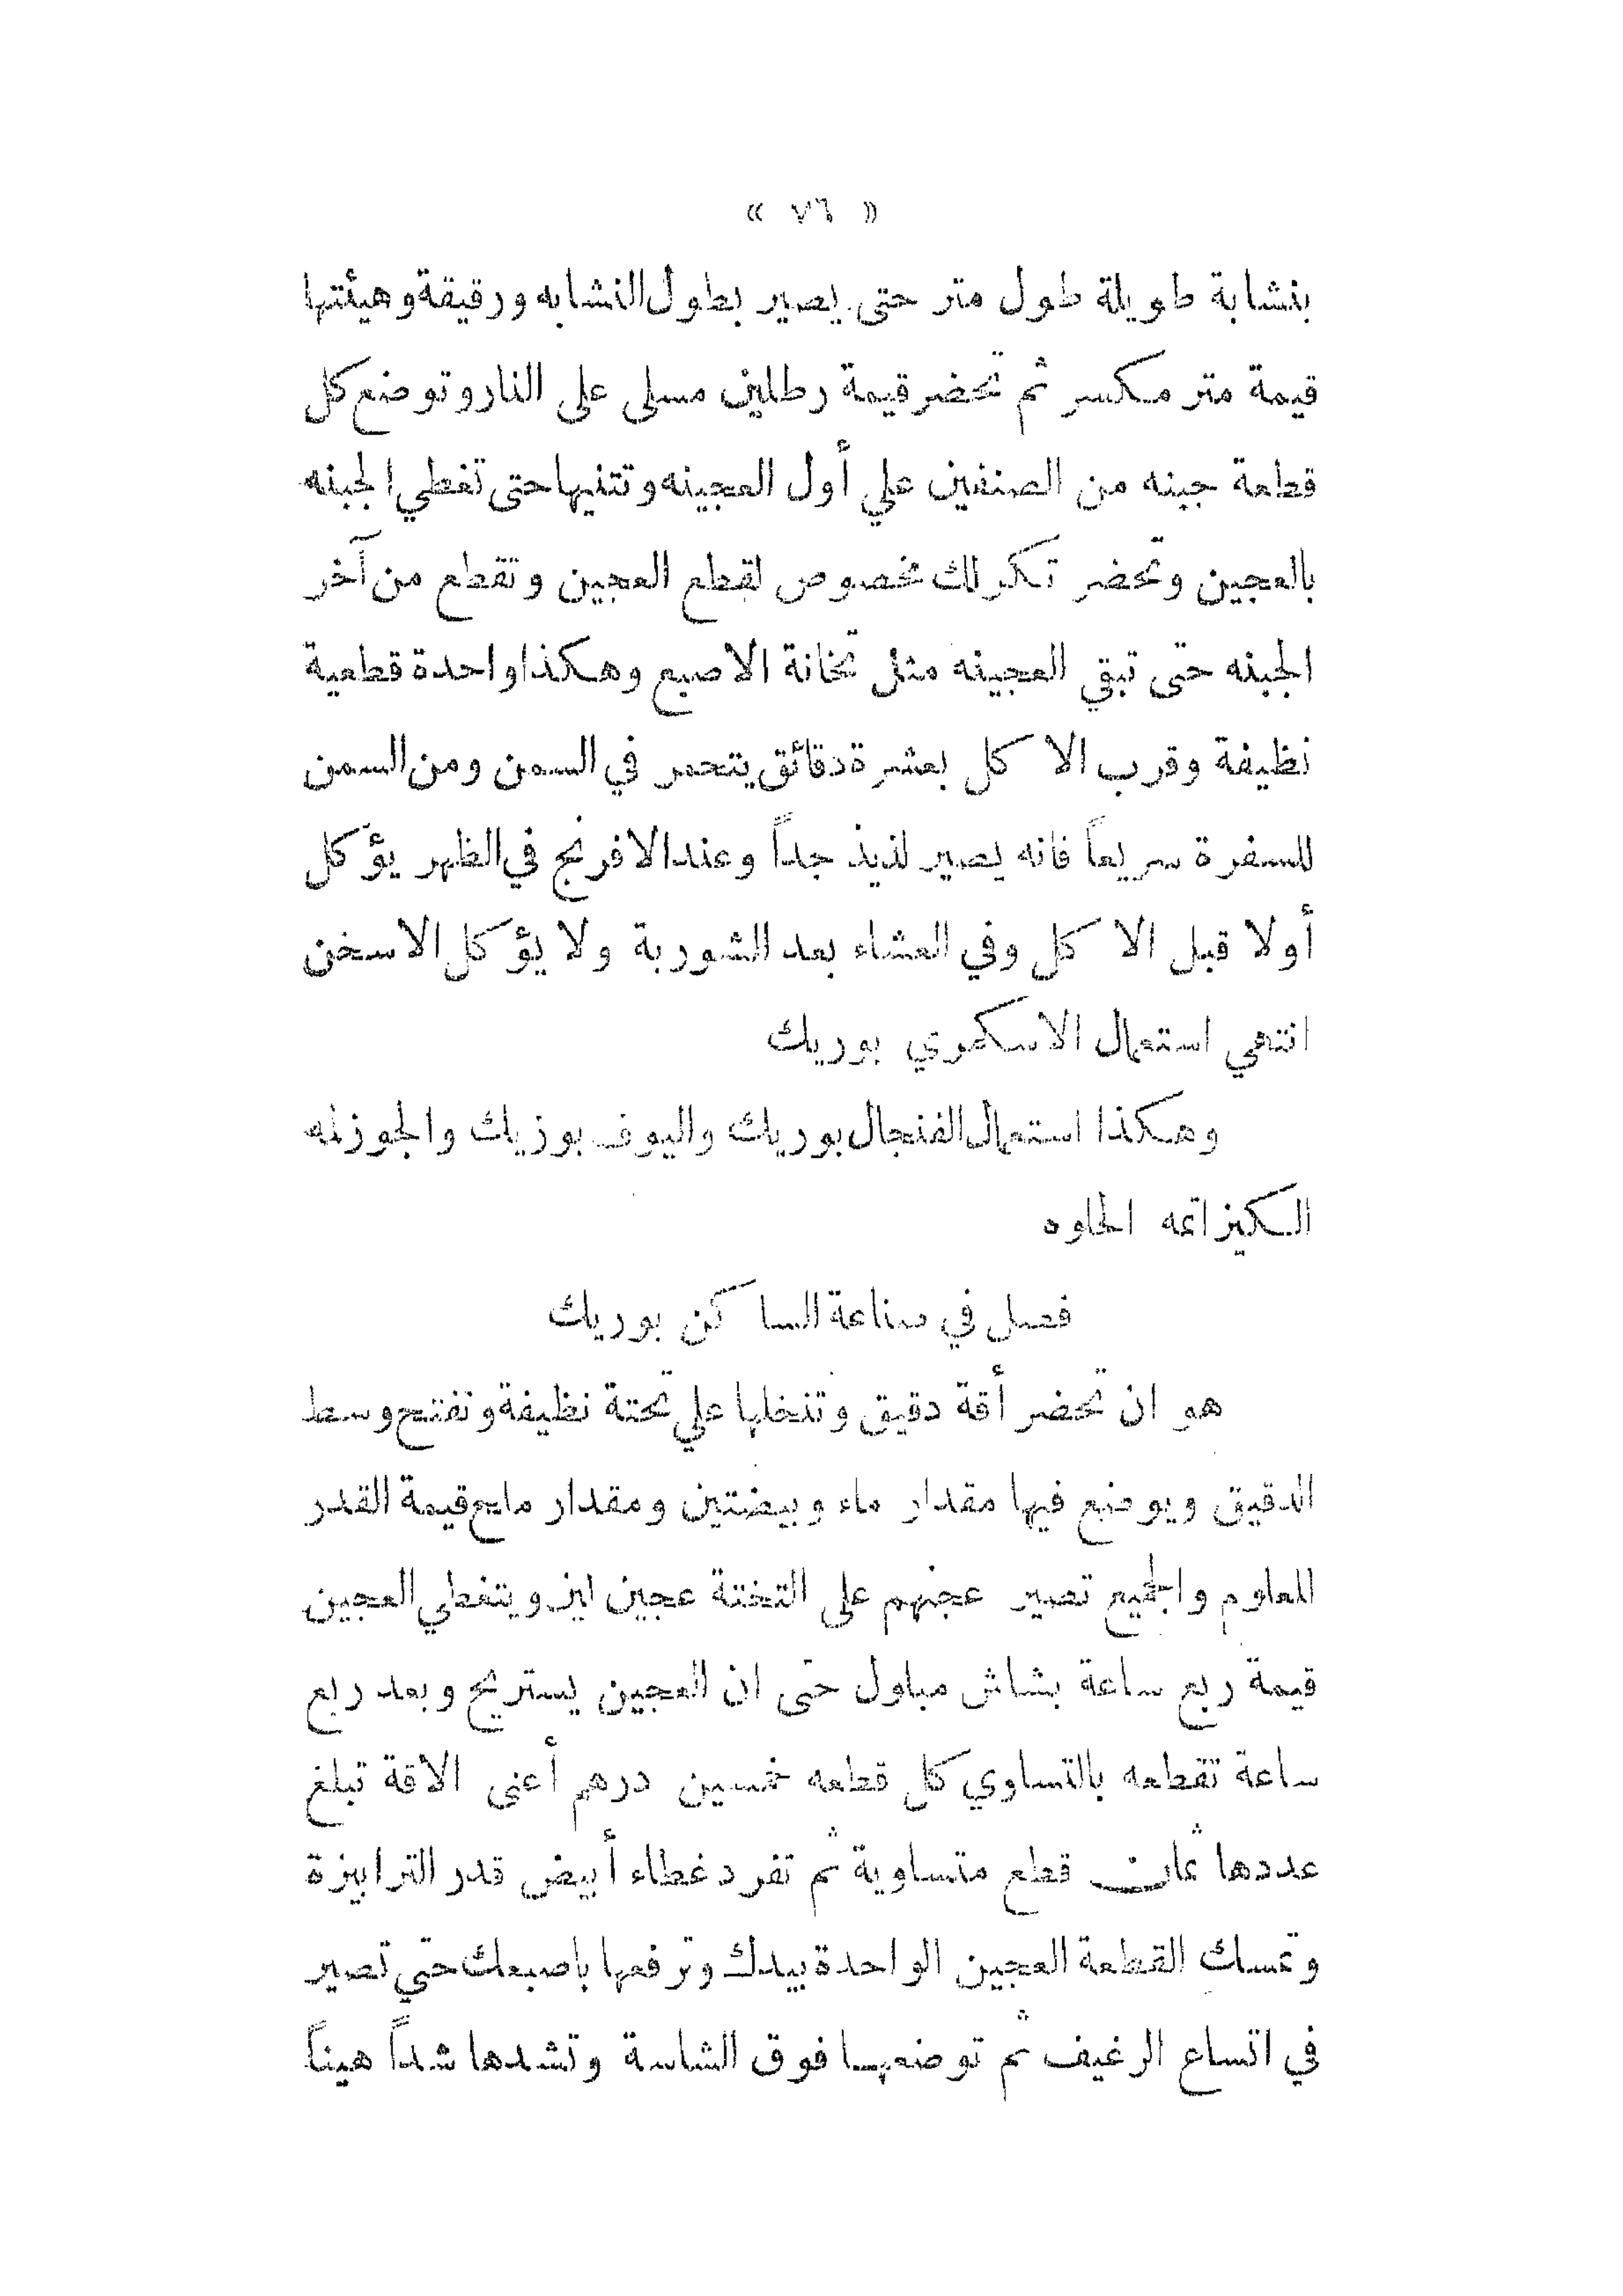 « ٧٦ »
بنشابة طويلة طول متر حتى يصير بطول النشابه ورقيقة وهيئتها
قيمة متر مكسر ثم تحضر قيمة رطلين مسلى على النار وتوضع كل
قطعة جبنه من الصنفين علي أول العجينه وتثنيها حتى تغطي الجبنه
بالعجين وتحضر تكرلك مخصوص لقطع العجين وتقطع من آخر
الجبنه حتى تبقي العجينه مثل تخانة الاصبع وهكذا واحدة قطعية
نظيفة وقرب الاكل بعشرة دقائق يتحمر في السمن ومن السمن
للسفرة سريعاً فانه يصير لذيذ جداً وعند الافرنج في الظهر يؤكل
أولا قبل الاكل وفي العشاء بعد الشوربة ولا يؤكل الا سخن
انتهي استعمال الاسكمري بوريك
وهكذا استعمال الفنجال بوريك واليوف بوزيك والجوزله
الكيزاتمه الحلوه
فصل في صناعة الساكن بوريك
هو ان تحضر أقة دقيق وتنخلها علي تختة نظيفة وتفتح وسط
الدقيق ويوضع فيها مقدار ماء وبيضتين ومقدار ملح قيمة القدر
المعلوم والجميع تصير عجنهم على التختة عجين ليز ويتغطي العجين
قيمة ربع ساعة بشاش مبلول حتى ان العجين يستريح وبعد ربع
ساعة تقطعه بالتساوي كل قطعه خمسين درهم أعنى الاقة تبلغ
عددها ثمان قطع متساوية ثم تفرد غطاء أبيض قدر الترابيزة
وتمسك القطعة العجين الواحدة بيدك وترفعها باصبعك حتي تصير
في اتساع الرغيف ثم توضعها فوق الشاسة وتشدها شداً هيناً